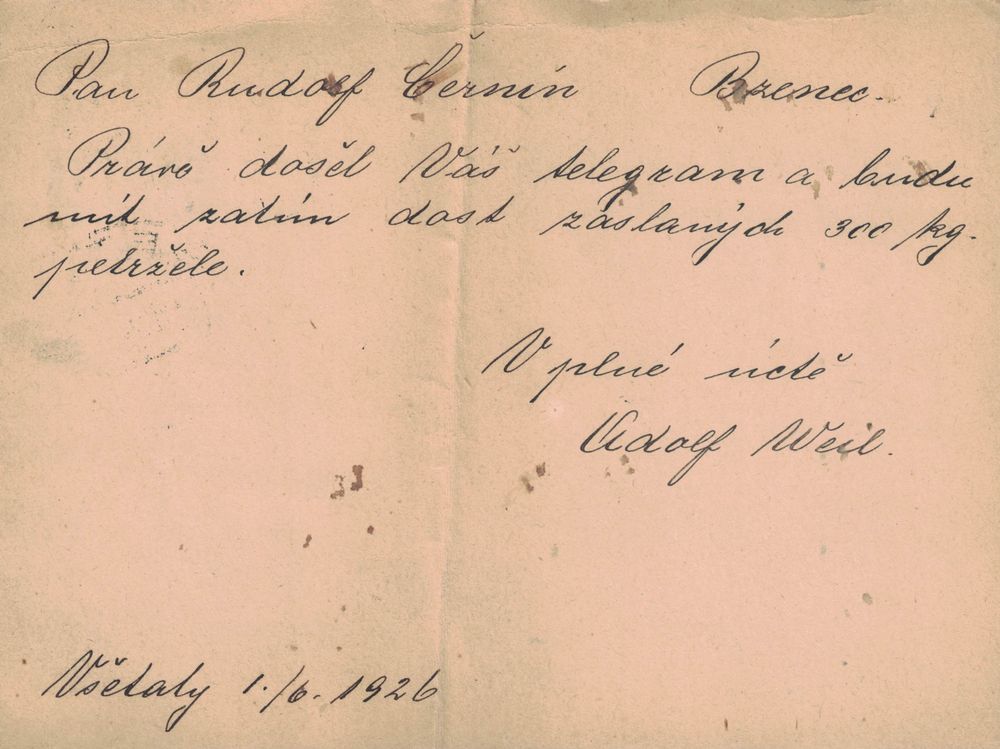 Pan Rudolf Černín Bzenec.
Právě došel Váš telegram a budu
mít zatím dost zaslaných 300 kg.
petržele.
V plné úctě
Adolf Weil.
Všetaty 1./6. 1926